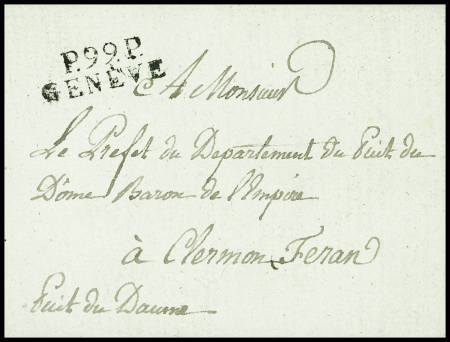 P.99.P.
GENÈVE
A Monsieur
Le Prefet du Departement du Puit du
Dôme Baron de l'Empire
à Clermon Feran
Puit du Daume